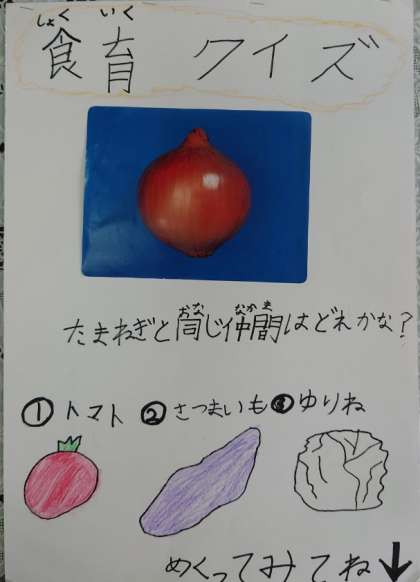 しょく いく
食育 クイズ
おな なかま
たまねぎと同じ仲間はどれかな?
① トマト ② さつまいも ③ ゆりね
めくってみてね↓